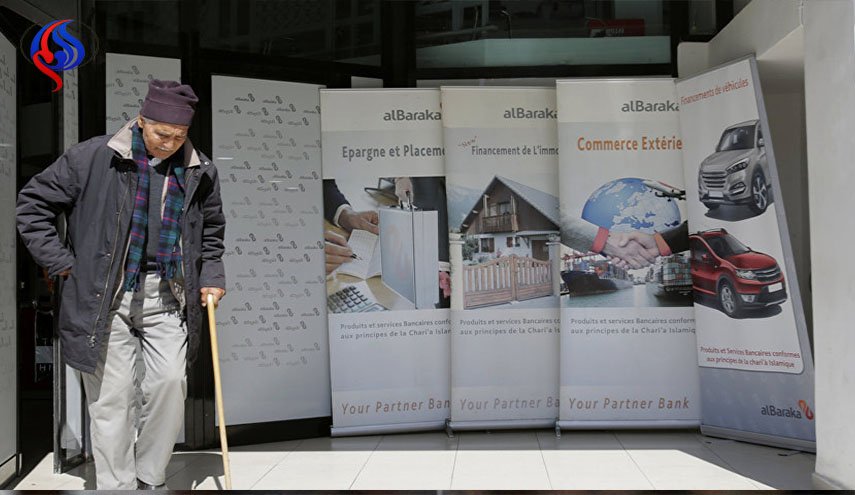 alBaraka
Epargne et Placeme
Produits et services Bancaires conform
aux principes de la Chari'a Islam
Your Partner Bank
alBaraka
Financement de L'immo
Produits et services Bancaires conforme
aux principes de la Chari'a Islami
Your Partner Bank
alBaraka
Commerce Extérie
Produits et services Bancaires conform
aux principes de la Chari'a Islamiq
Your Partner Bank
Financements de véhicules
Produits et Services Bancaires conformes
aux principes de la chari'a Islamique
alBaraka